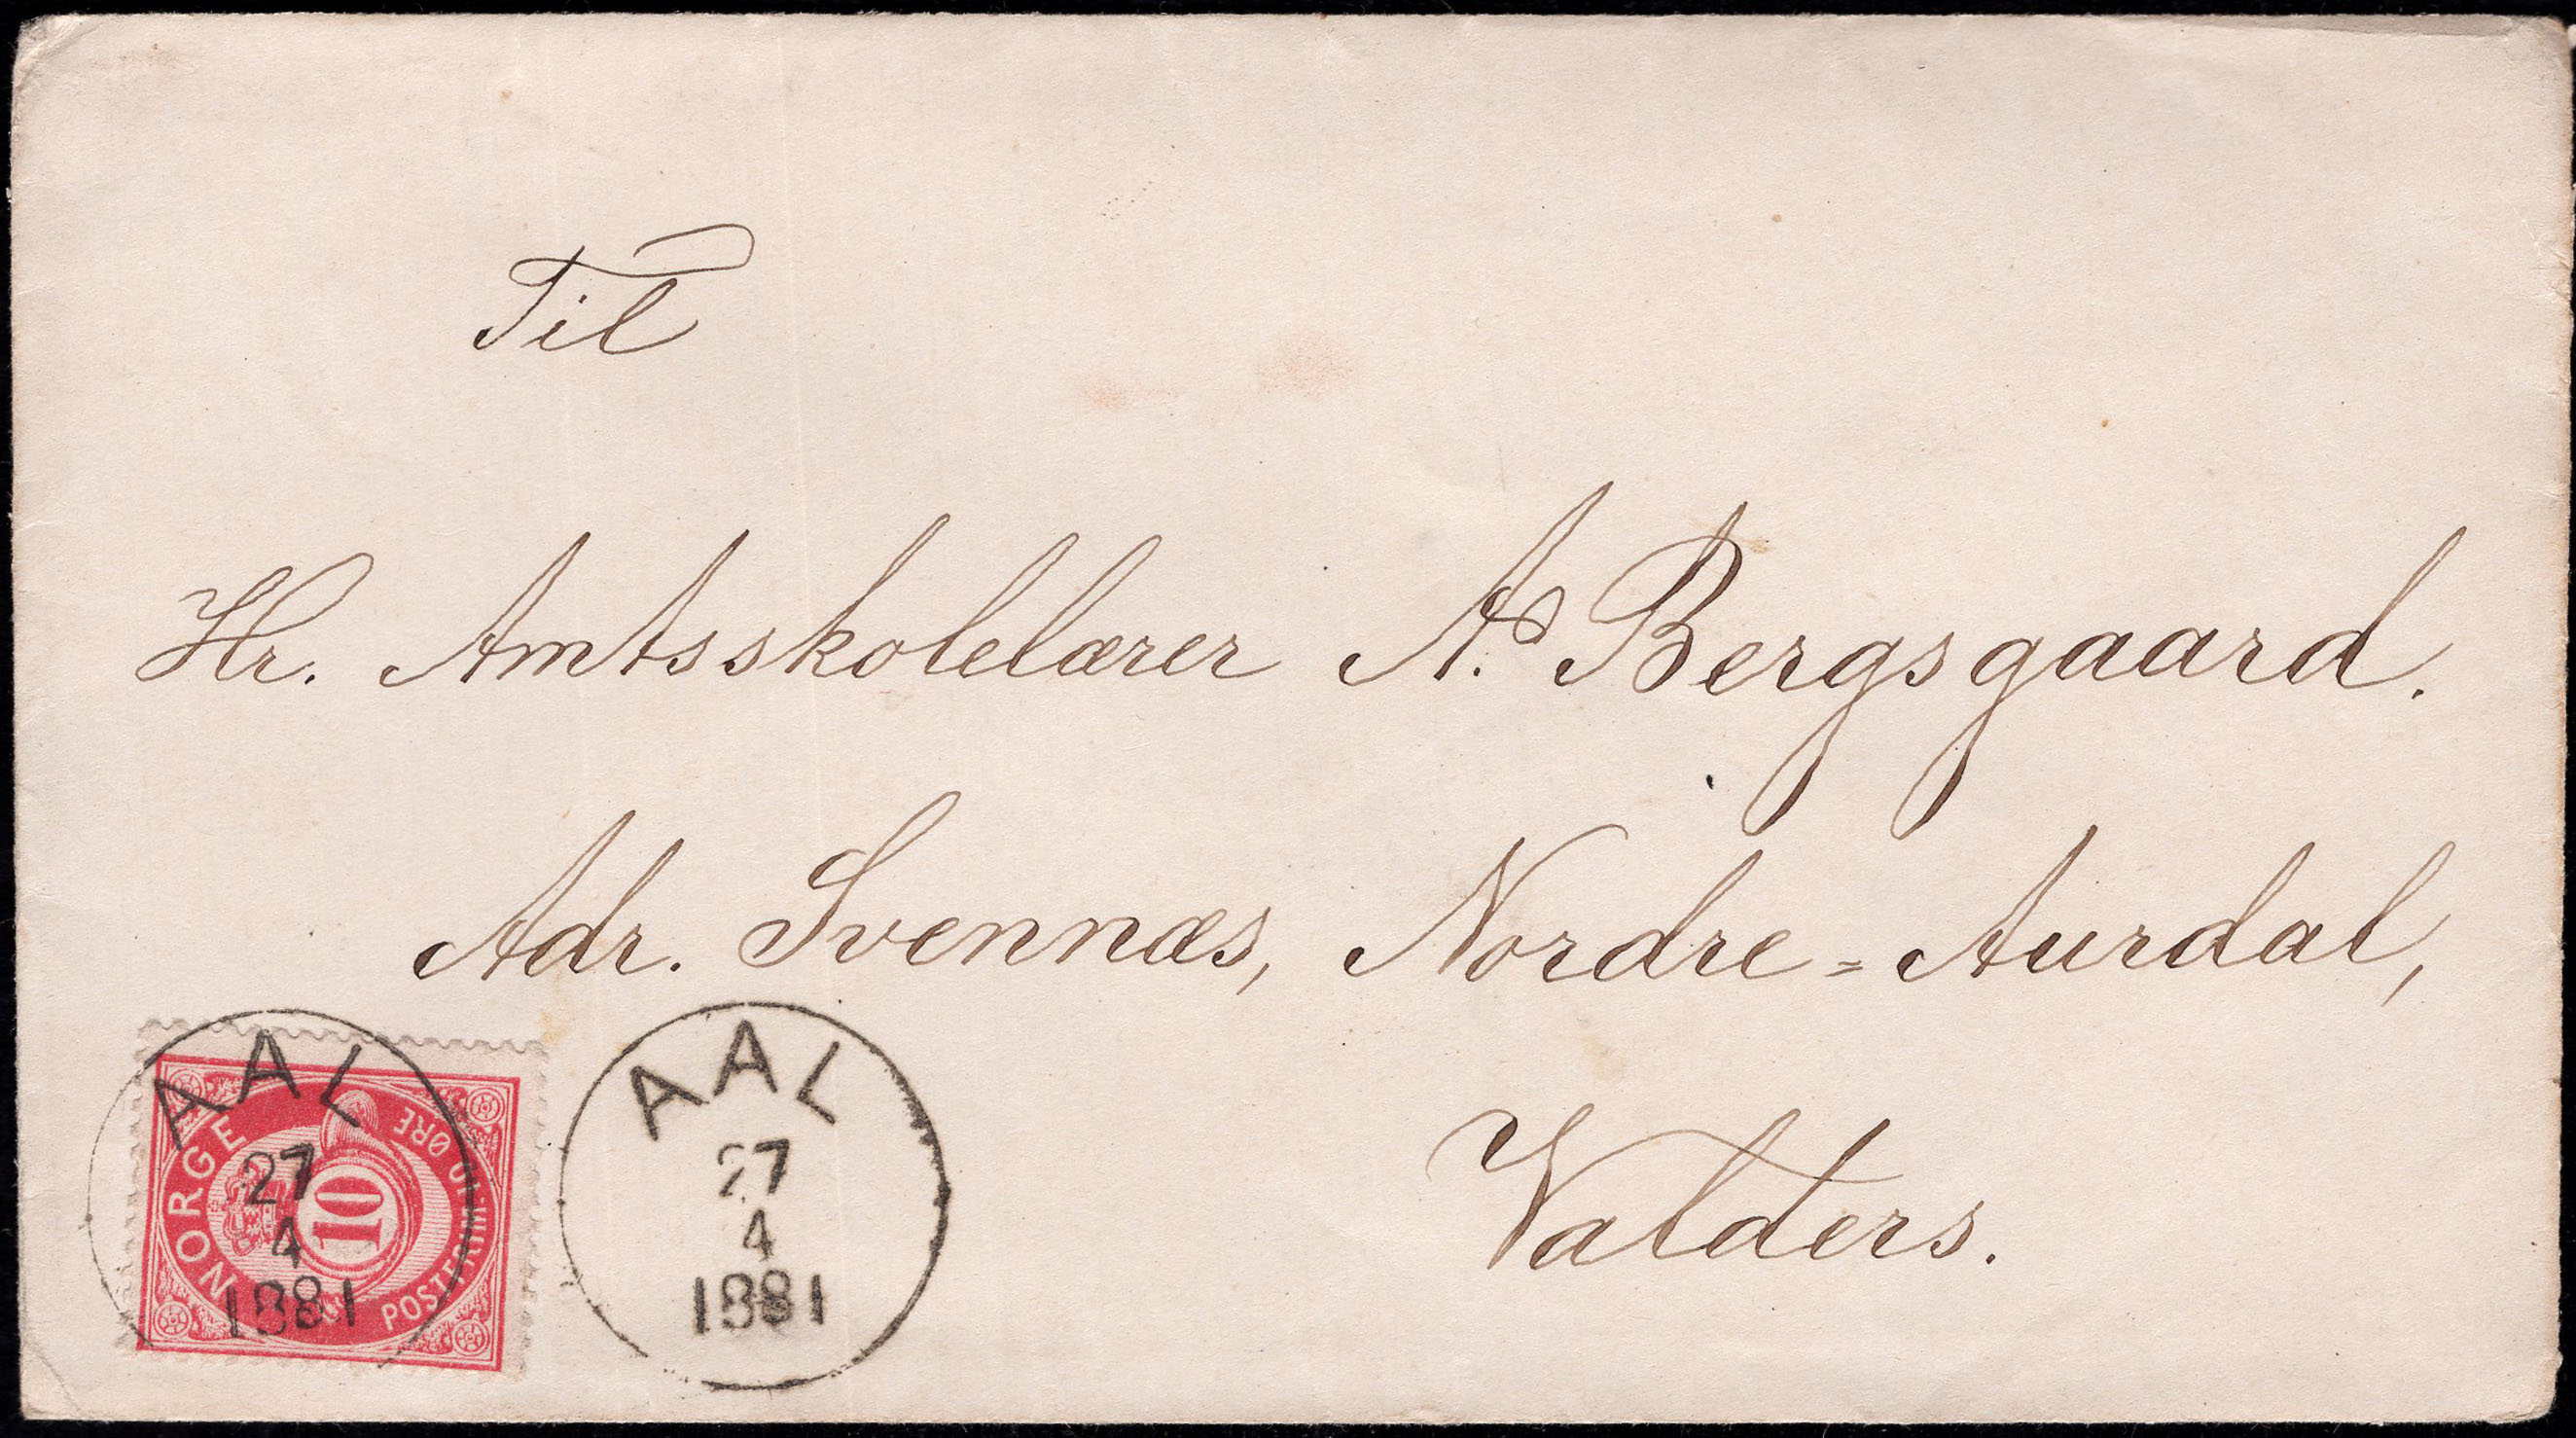 Til
Hr. Amtsskolelærer A. Bergsgaard.
Adr. Svennæs, Nordre=Aurdal,
Valders.
AAL
27
4
1881
NORGE
POSTFRIM. 10 ØRE
10
AAL
27
4
1881